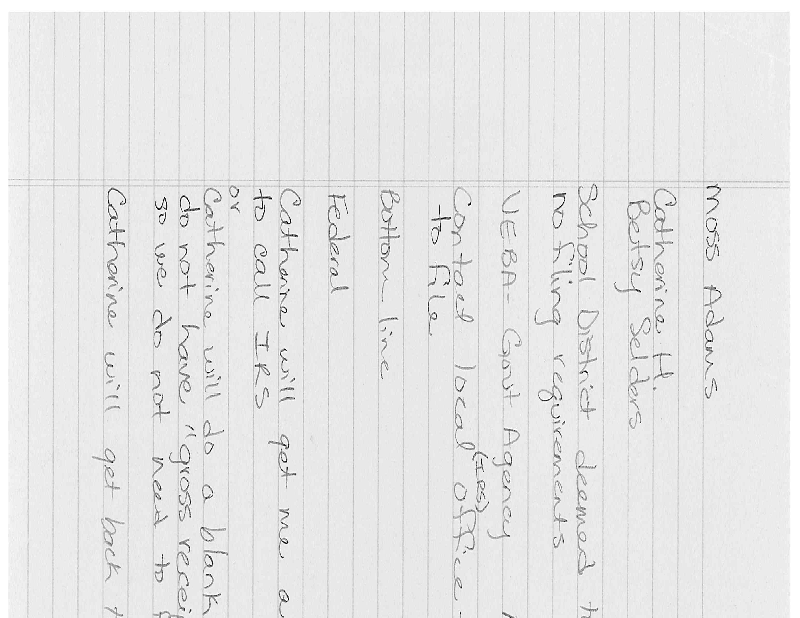 Moss Adams
Catherine H.
Betsy Selders
School District deemed
no filing requirements
VEBA - Govt Agency
(IRS)
Contact local office -
- to file
Bottom line
Federal
Catherine will get me a
to call IRS
or
Catherine will do a blank
do not have "gross recei
so we do not need to
Catherine will get back t